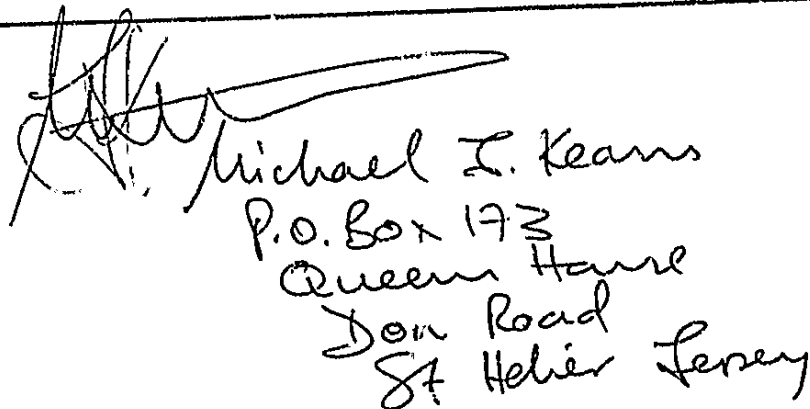 Michael I. Kearns
P.O. Box 173
Queens House
Don Road
St Helier Jersey